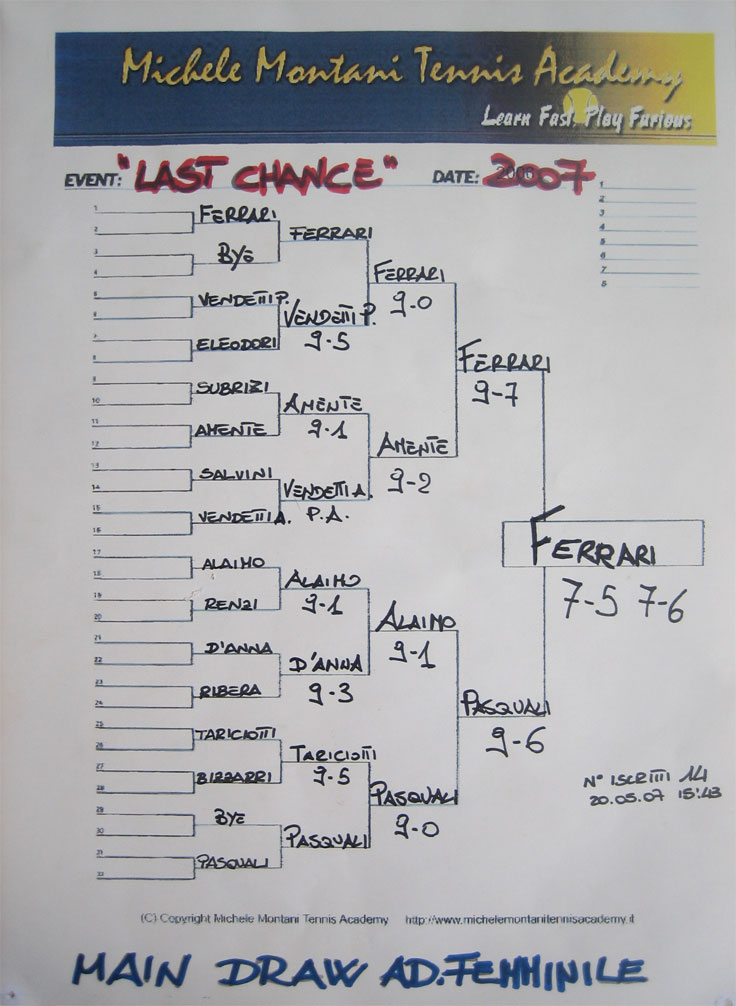 Michele Montani Tennis Academy
Learn Fast, Play Furious
EVENT: "LAST CHANCE" DATE: 2007
1
2
3
4
5
6
7
8
1
2
3
4
5
6
7
8
9
10
11
12
13
14
15
16
17
18
19
20
21
22
23
24
25
26
27
28
29
30
31
32
FERRARI
BYE
VENDETTI P.
ELEODORI
SUBRIZI
AMENTE
SALVINI
VENDETTI A.
ALAIMO
RENZI
D'ANNA
RIBERA
TARICIOTTI
BIZZARRI
BYE
PASQUALI
FERRARI
VENDETTI P.
9-5
AMENTE
9-1
VENDETTI A.
P.A.
ALAIMO
9-1
D'ANNA
9-3
TARICIOTTI
9-5
PASQUALI
FERRARI
9-0
AMENTE
9-2
ALAIMO
9-1
PASQUALI
9-0
FERRARI
9-7
PASQUALI
9-6
FERRARI
7-5 7-6
N° ISCRITTI 14
20.05.07 15:43
(C) Copyright Michele Montani Tennis Academy http://www.michelemontanitennisacademy.it
MAIN DRAW AD.FEMMINILE